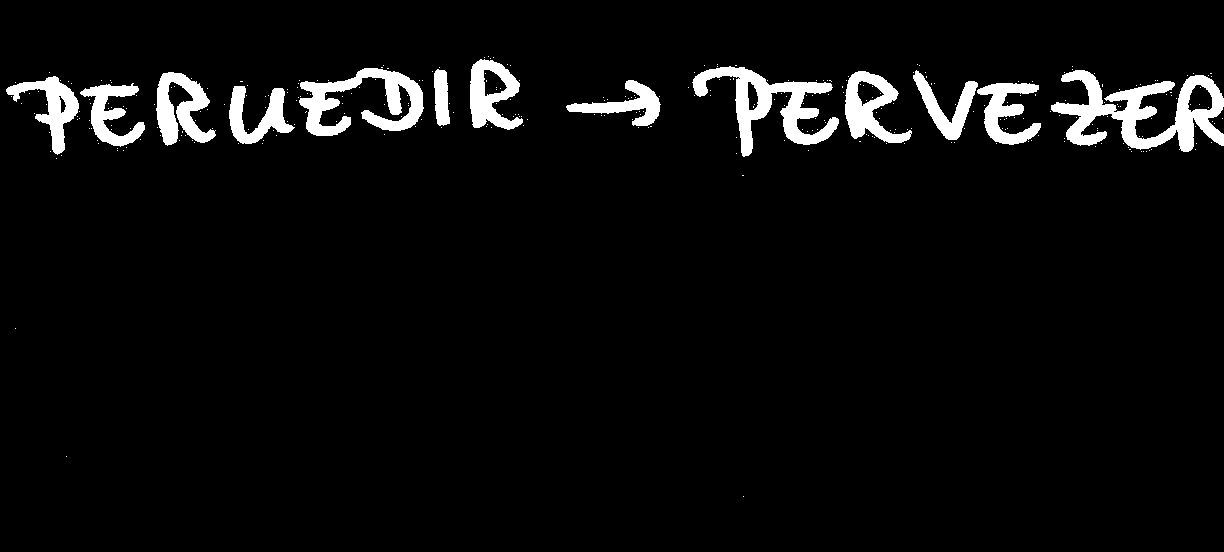 PERUEDIR → PERVEZER